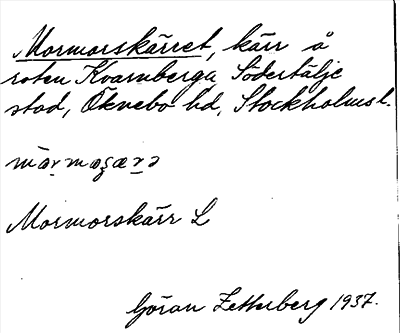 Mormorskärret, kärr å
roten Kvarnberga Södertälje
stad, Öknebo hd, Stockholms l.
Mormorskärr L
Göran Zetterberg 1937.